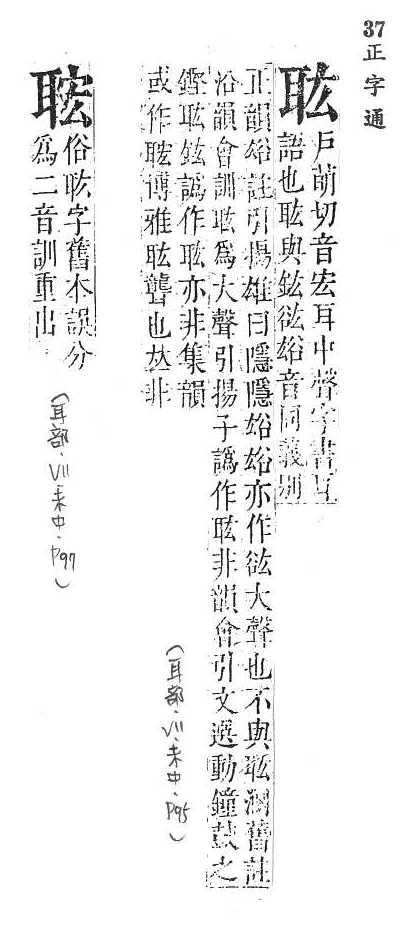 37 正字通
耾
戶萌切音宏耳中聲字書互
語也耾與鈜浤谹音同義別
正韻谹註引揚雄曰隱隱谹谹亦作浤大聲也不與耾溷舊註
沿韻會訓耾爲大聲引揚子譌作耾非韻會引文選動鐘鼓之
鏗耾鈜譌作耾亦非集韻
或作博雅耾聾也𠀤非
(耳部·VII·未中·P95)
俗耾字舊本誤分
爲二音訓重出
(耳部·VII·未中·P97)